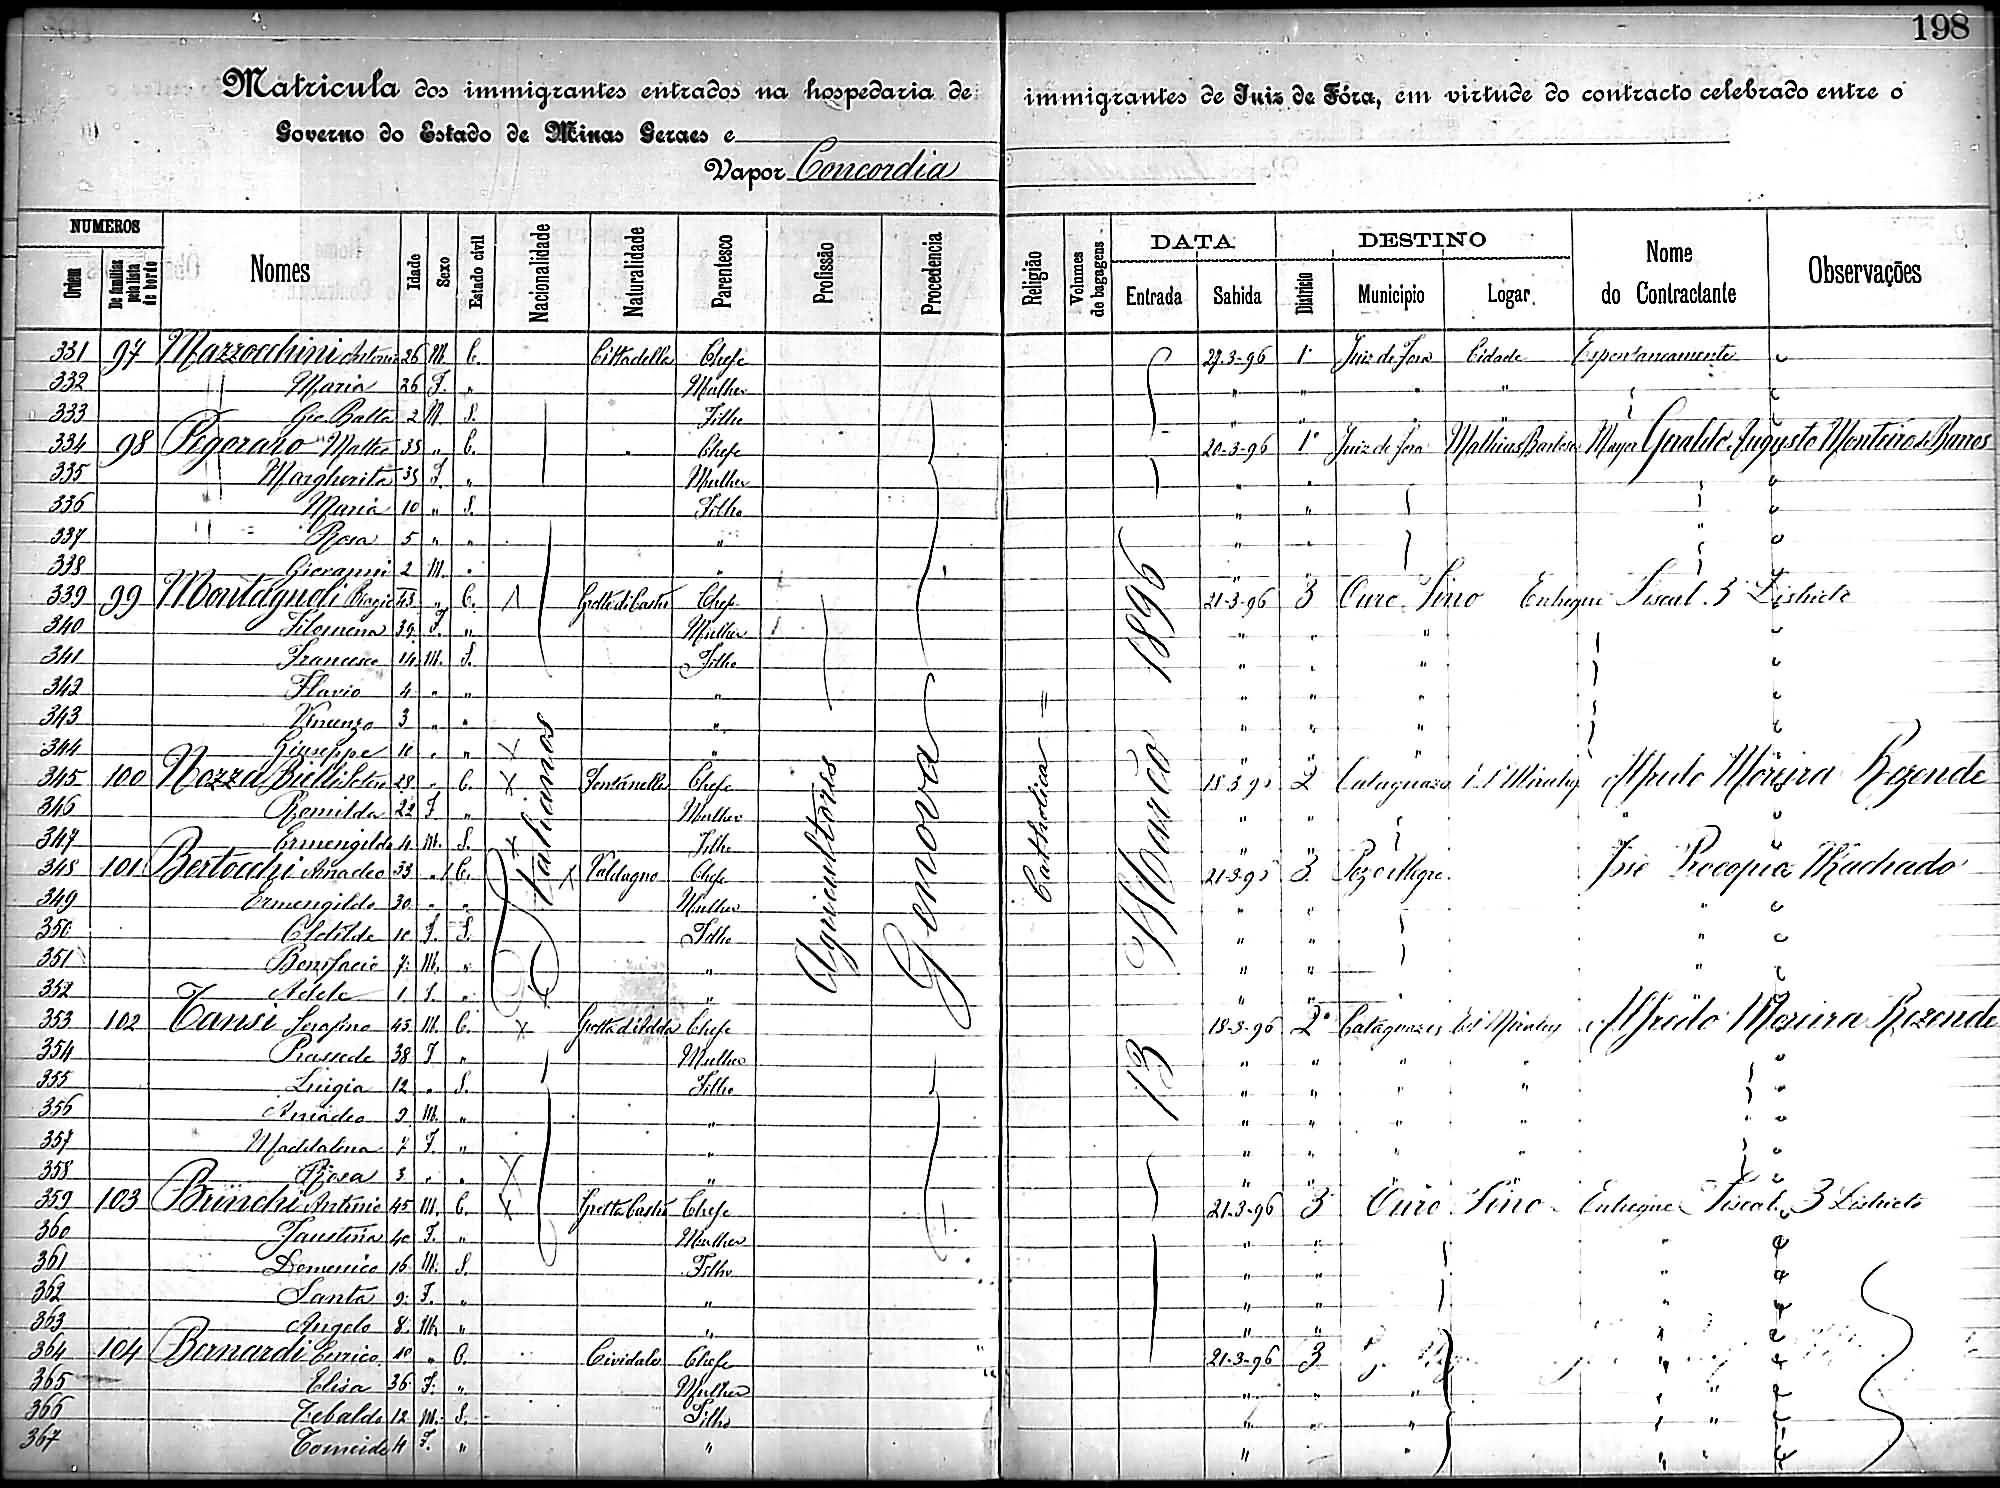 198
Matricula dos immigrantes entrados na hospedaria de immigrantes de Juiz de Fóra, em virtude do contracto celebrado entre o
Governo do Estado de Minas Geraes e
Vapor Concordia
NUMEROS DATA DESTINO
Ordem De familias pela lista de bordo Nomes Idade Sexo Estado civil Nacionalidade Naturalidade Parentesco Profissão Procedencia Religião Volumes de bagagens Entrada Sahida Districto Municipio Logar Nome do Contractante Observações
Italianos Agricultores Genova Catholica 13 Março 1896
331 97 Mazzocchini Antonio 26 M. C. Cittadella Chefe 27-3-96 1º Juiz de Fora Cidade Espontaneamente
332 Maria 26 F. " Mulher " " " "
333 Gio Batta 2 M. S. Filho " " " "
334 98 Pegoraro Matteo 35 " C. " Chefe 20-3-96 1º Juiz de Fora Mathias Barbosa Major Gualdo Augusto Monteiro de Barros
335 Margherita 35 F. " Mulher " "
336 Maria 10 " S. Filho " "
337 Rosa 5 " " " " "
338 Giovanni 2 M. " " " "
339 99 Montagnoli Biagio 43 " C. Grotte di Castro Chefe 21-3-96 3 Ouro Fino Entregue Fiscal 3 Districto
340 Filomena 39 F. " Mulher " " "
341 Francesco 14 M. S. Filho " " "
342 Flavio 4 " " " " " "
343 Vincenzo 3 " " " " " "
344 Giuseppe 10 " " " " " "
345 100 Nozza Bielli 28 " C. Fontanella Chefe 18-3-96 2 Cataguazes Alfredo Moreira Rezende
346 Romilda 22 F " Mulher " " "
347 Ermengildo 4 M. S. Filho " "
348 101 Bertocchi Amadeo 33 " C. Valdagno Chefe 21-3-96 3 Pozo Alegre José Procopio Machado
349 Ermengilda 30 " " Mulher " " "
350 Clotilde 10 F. S. Filho " " "
351 Bonifacio 7 M. " " " " "
352 Adele 1 F. " " " " "
353 102 Tansi Serafino 45 M. C. Chefe 18-3-96 2º Cataguazes Alfredo Moreira Rezende
354 Prassede 38 F " Mulher " " " "
355 Luigia 12 " S. Filho " " " "
356 Amadeo 9 M. " " " " " "
357 Maddalena 7 F. " " " " " "
358 Rosa 3 " " " " " "
359 103 Brinchi Antonio 45 M. C. Grotte Castro Chefe 21-3-96 3 Ouro Fino Entregue Fiscal 3 Districto
360 Faustina 40 F. " Mulher " " "
361 Domenico 16 M. S. Filho " " "
362 Santa 9 F. " " " " "
363 Angelo 8 M. " " " " "
364 104 Bernardi Enrico " C. Cividale Chefe 21-3-96 3
365 Elisa 36 F. " Mulher " " " "
366 Tebaldo 12 M. S. Filho " " " "
367 4 F. " " " " "